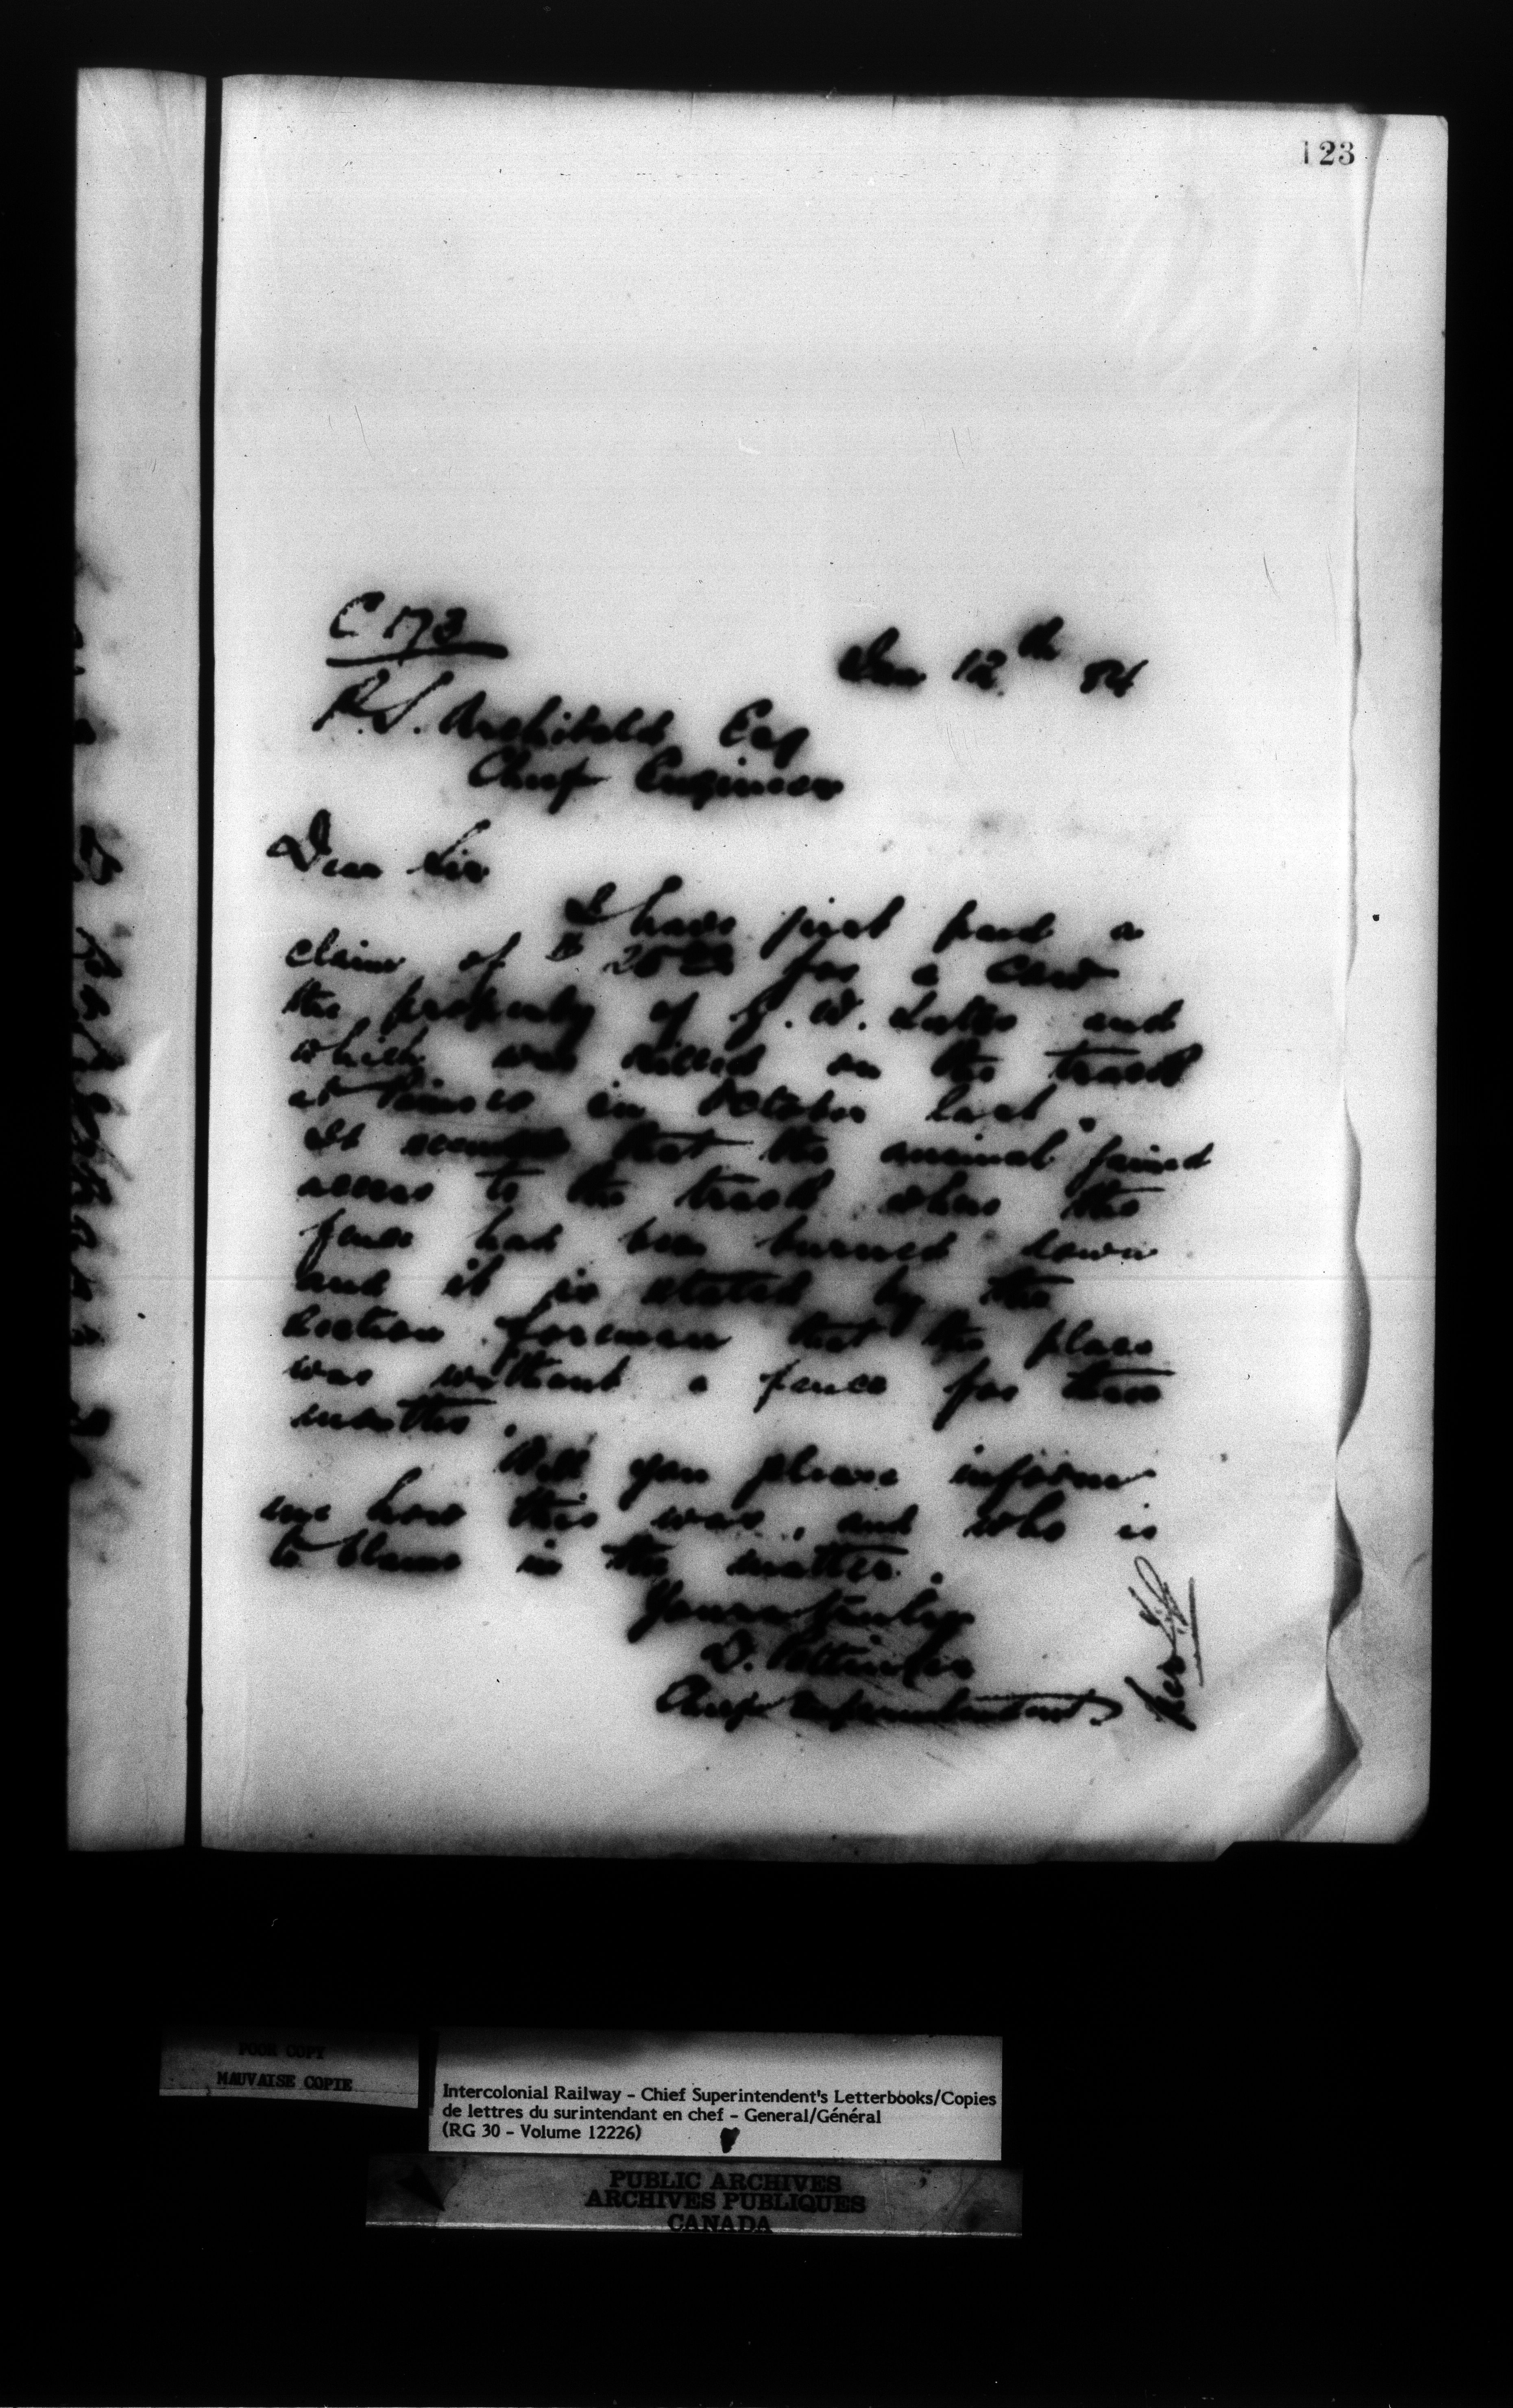 123
C 173
12th 84
P.S. Archibald Esq
Chief Engineer
Dear Sir
I have just paid a
claim of $ 25 00 for a Cow
the property of W. Lutes and
which was killed on the track
at in October last.
It that the animal gained
access to the track where the
fence had been burned down
and it is stated by the
Section foreman that the place
was without a fence for three
months.
Will you please inform
me how this was, and who is
to blame in the matter.
Yours truly
D. Pottinger
Chief Superintendent
per
POOR COPY
MAUVAISE COPIE
Intercolonial Railway - Chief Superintendent's Letterbooks/Copies
de lettres du surintendant en chef - General/Général
(RG 30 - Volume 12226)
PUBLIC ARCHIVES
ARCHIVES PUBLIQUES
CANADA